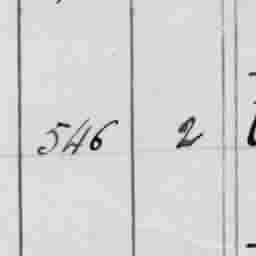 546 2